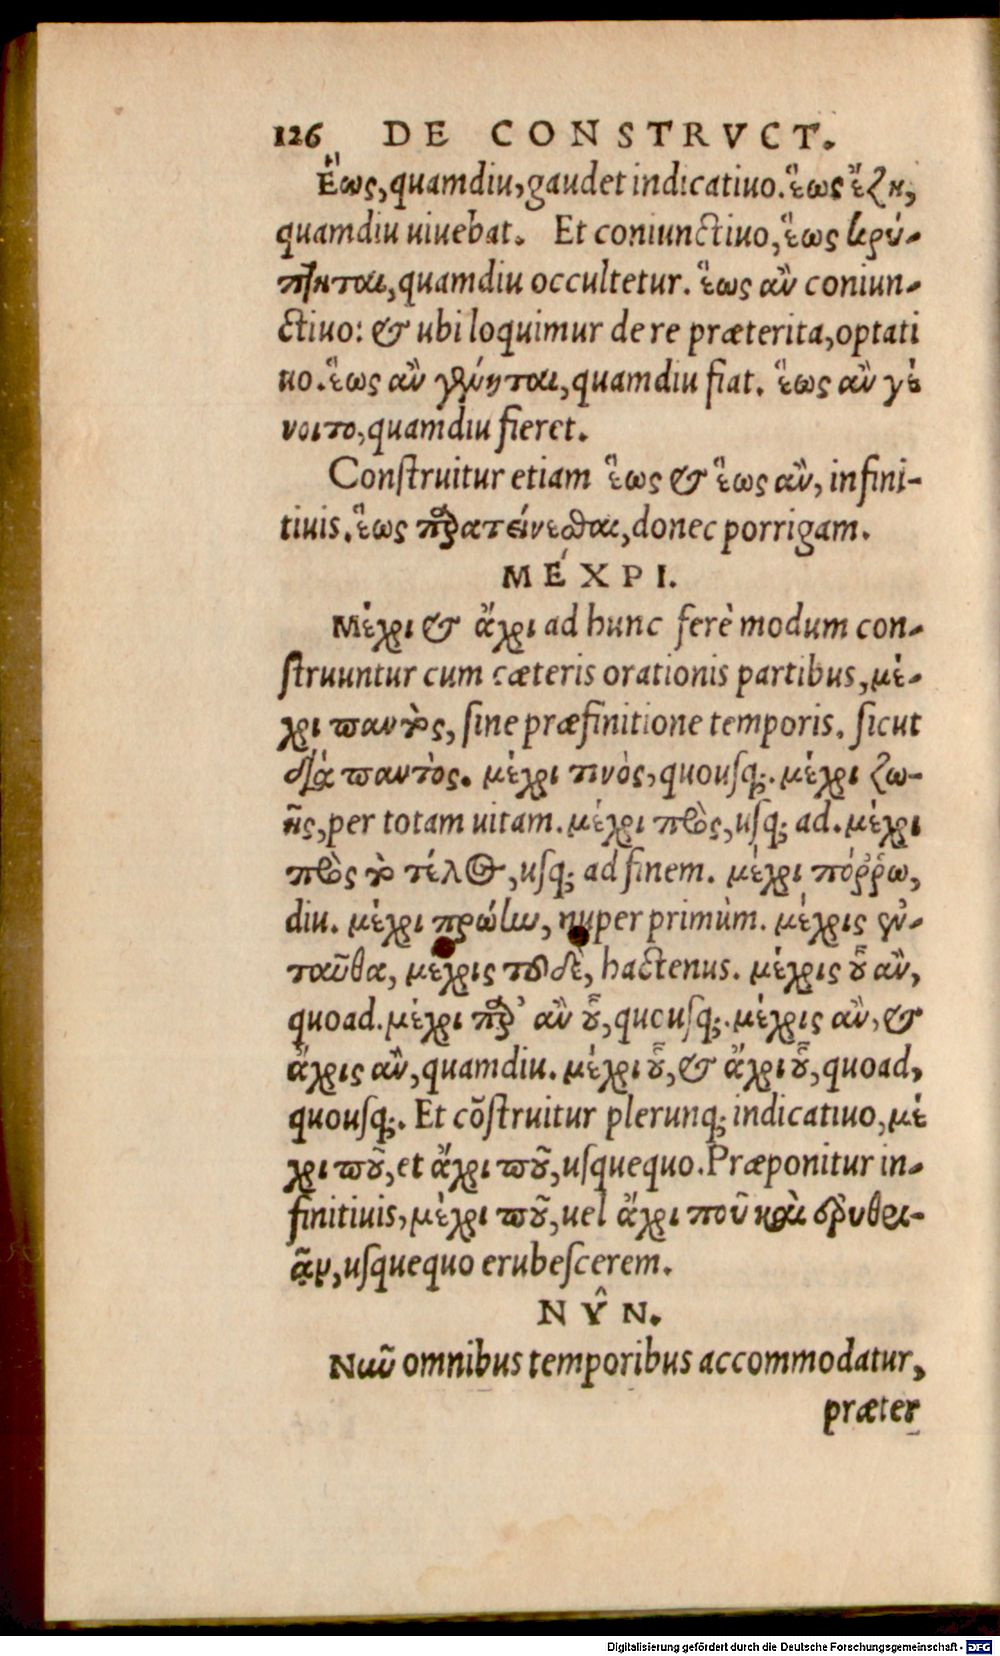 126 DE CONSTRVCT.
Ἕως, quamdiu, gaudet indicatiuo. ἕως ἔζη,
quamdiu uiuebat. Et coniunctiuo, ἕως κρύ-
πτηται, quamdiu occultetur. ἕως ἂν coniun-
ctiuo: & ubi loquimur de re præterita, optati
uo. ἕως ἂν γένηται, quamdiu fiat. ἕως ἂν γέ
νοιτο, quamdiu fieret.
Construitur etiam ἕως & ἕως ἂν, infini-
tiuis. ἕως παρατείνεσθαι, donec porrigam.
ΜΈΧΡΙ.
Μέχρι & ἄχρι ad hunc ferè modum con-
struuntur cum cæteris orationis partibus, μέ-
χρι παντός, sine præfinitione temporis. sicut
διὰ παντὸς. μέχρι τινὸς, quousq;. μέχρι ζω-
ῆς, per totam uitam. μέχρι πρὸς, usq; ad. μέχρι
πρὸς τὸ τέλος, usq; ad finem. μέχρι πόῤῥω,
diu. μέχρι πρώην, nuper primùm. μέχρις ἐν-
ταῦθα, μέχρις τοῦδε, hactenus. μέχρις οὗ ἂν,
quoad. μέχρι παρ' ἂν οὗ, quousq;. μέχρις ἂν, &
ἄχρις ἂν, quamdiu. μέχρι οὗ, & ἄχρι οὗ, quoad,
quousq;. Et cōstruitur plerunq; indicatiuo, μέ
χρι ποῦ, et ἄχρι ποῦ, usquequo. Præponitur in-
finitiuis, μέχρι ποῦ, uel ἄχρι ποῦ καὶ ἐρυθρι-
ᾷν, usquequo erubescerem.
ΝΥ͂Ν.
Νιῦ omnibus temporibus accommodatur,
præter
Digitalisierung gefördert durch die Deutsche Forschungsgemeinschaft - DFG